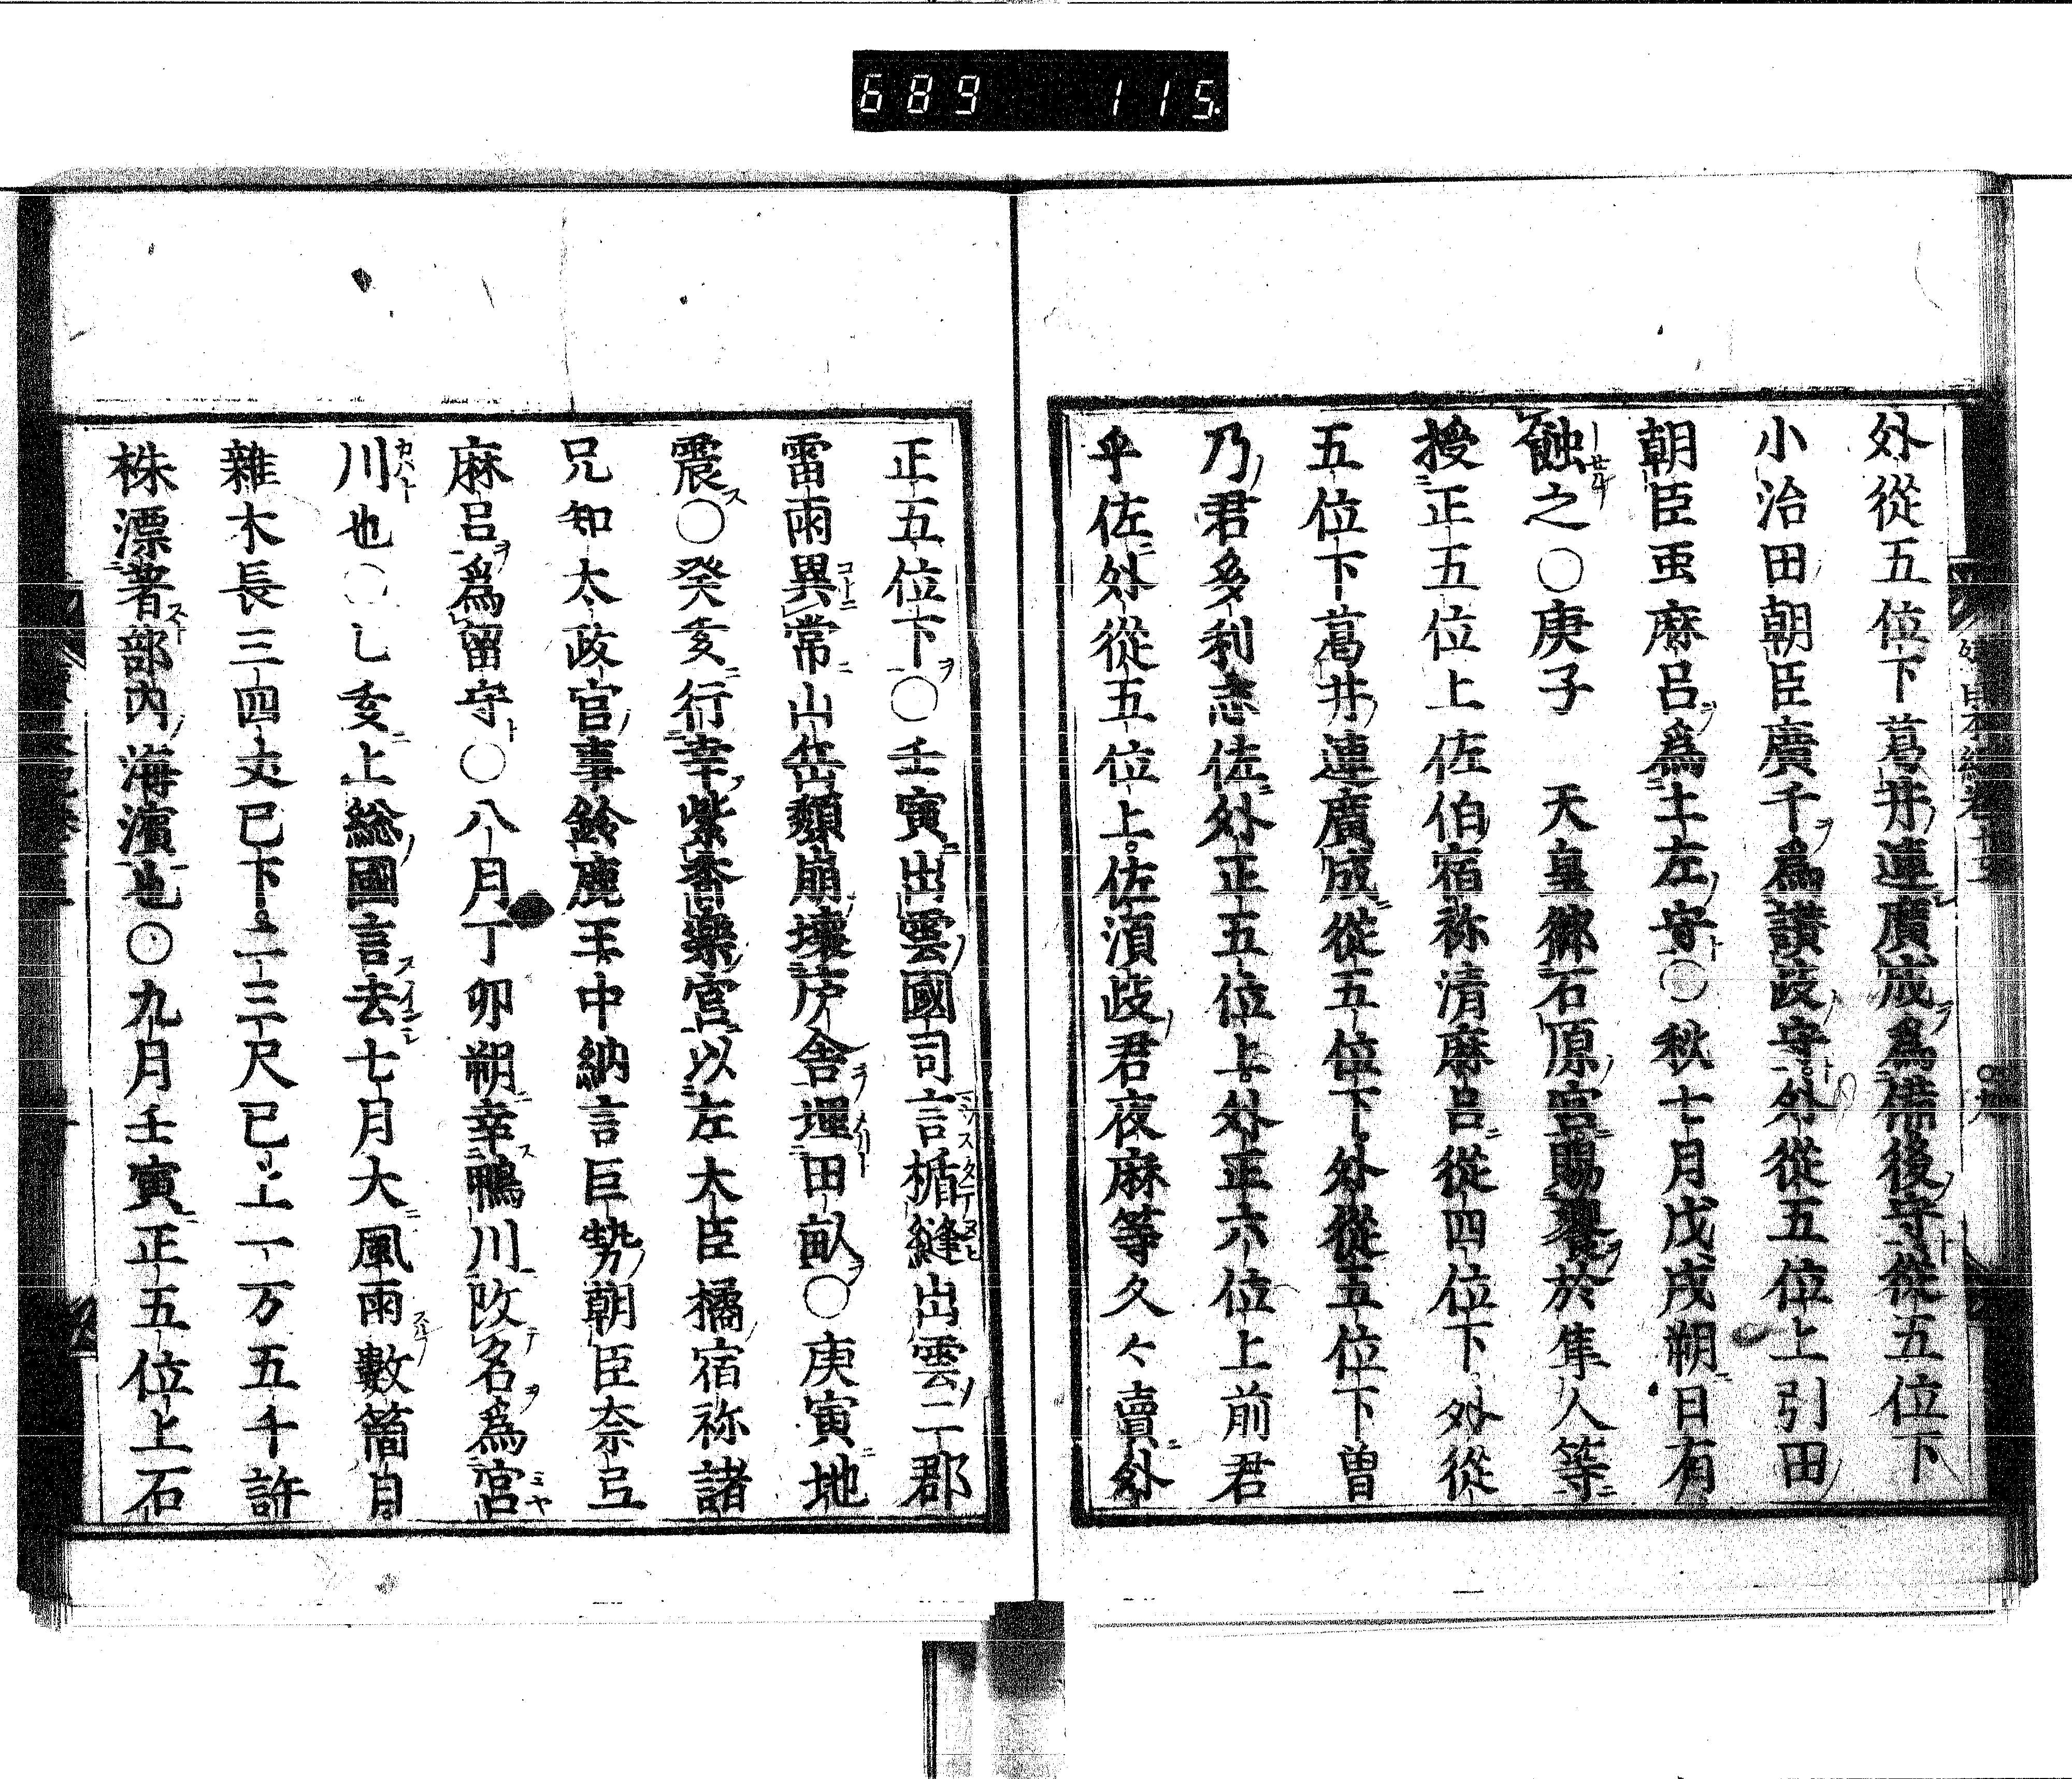 689 115
外從五位下葛井連廣成爲備後守從五位下
小治田朝臣廣千爲讃岐守外從五位上引田
朝臣虫麻呂爲土左守〇秋七月戊戌朔日有
蝕之〇庚子 天皇御石原宮賜饗於隼人等
授正五位上佐伯宿祢清麻呂從四位下外從
五位下葛井連廣成從五位下外從五位下曽
乃君多利志佐外正五位上外正六位上前君
乎佐外從五位上佐須岐君夜麻等久々賣外
正五位下〇壬寅出雲國司言楯縫出雲二郡
雷雨異常山岳頽崩壞庐舎埋田畝〇庚寅地
震〇癸亥行幸紫香樂宮以左大臣橘宿祢諸
兄知太政官事鈴鹿王中納言巨勢朝臣奈弖
麻呂爲留守〇八月丁卯朔幸鴨川改名爲宮
川也〇乙亥上総國言去七月大風雨數箇日
雜木長三四丈已下二三尺已上一万五千許
株漂著部内海濱也〇九月壬寅正五位上石